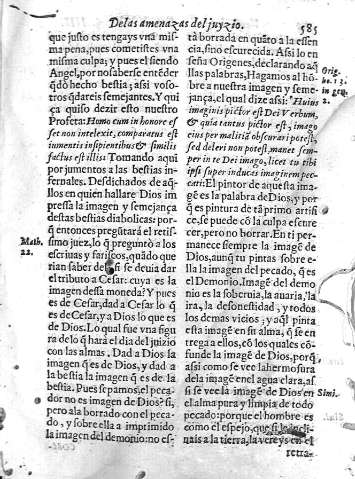 De las amenazas del juyzio.
585
que justo es tengays vna mis
ma pena, pues cometistes vna
misma culpa; y pues el siendo
Angel, por no saberse entẽder
q̃dò hecho bestia; assi voso-
tros q̃dareis semejantes. Y qui
çà quiso dezir esto nuestro
Profeta: Homo cum in honore es
set non intelexit, comparatus est
iumentis insipientibus & similis
factus est illis: Tomando aqui
por jumentos a las bestias in-
fernales. Desdichados de aq̃-
llos en quiẽ hallare Dios im
pressa la imagen y semejança
destas bestias diabolicas; por-
q̃ entonces pregũtarà el retis-
simo juez, lo q̃ preguntò a los
escriuas y fariseos, quãdo que
rian saber del si se deuia dar
el tributo a Cesar: cuya es la
imagen dessa moneda? Y pues
es de Cesar, dad a Cesar lo q̃
es de Cesar, y a Dios lo que es
de Dios. Lo qual fue vna figu
ra de lo q̃ harà el dia del juizio
con las almas. Dad a Dios la
imagen q̃ es de Dios, y dad a
la bestia la imagen q̃ es de la
bestia. Pues sepamos, el peca-
dor no es imagen de Dios? si,
pero ala borrado con el peca-
do, y sobre ella a imprimido
la imagen del demonio: no es-
Math.
22.
tà borrada en quãto a la essen
cia, sino escurecida. Assi lo en
seña Origenes, declarando aq̃
llas palabras, Hagamos al hõ-
bre a nuestra imagen y seme-
jança, el qual dize assi: Huius
imaginis pictor est Dei Verbum,
& quia tantus pictor est, imago
eius per malitiã obscurari potest,
sed deleri non potest, manet sem-
per in te Dei imago, licet tu tibi
ipsi super inducas imaginem pec-
cati: El pintor de aquesta ima-
gẽ es la palabra de Dios, y por
q̃ es pintura de tã primo artifi
ce, se puede cõ la culpa escure
cer, pero no borrar. En ti per-
manece siempre la imagẽ de
Dios, aunq̃ tu pintas sobre e-
lla la imagen del pecado, q̃ es
el Demonio. Imagẽ del demo
nio es la soberuia, la auaricia, la
ira, la desonestidad, y todos
los demas vicios; y aq̃l pinta
esta imagẽ en su alma, q̃ se en
trega a ellos, cõ los quales cõ-
funde la imagẽ de Dios, porq̃
assi como se vee la hermosura
de la imagẽ en el agua clara, as
si se vee la imagẽ de Dios en
el alma pura y limpia de todo
pecado: porque el hombre es
como el espejo, que si le incli-
nais a la tierra, la vereys en el
Orig.
Simi.
retra-